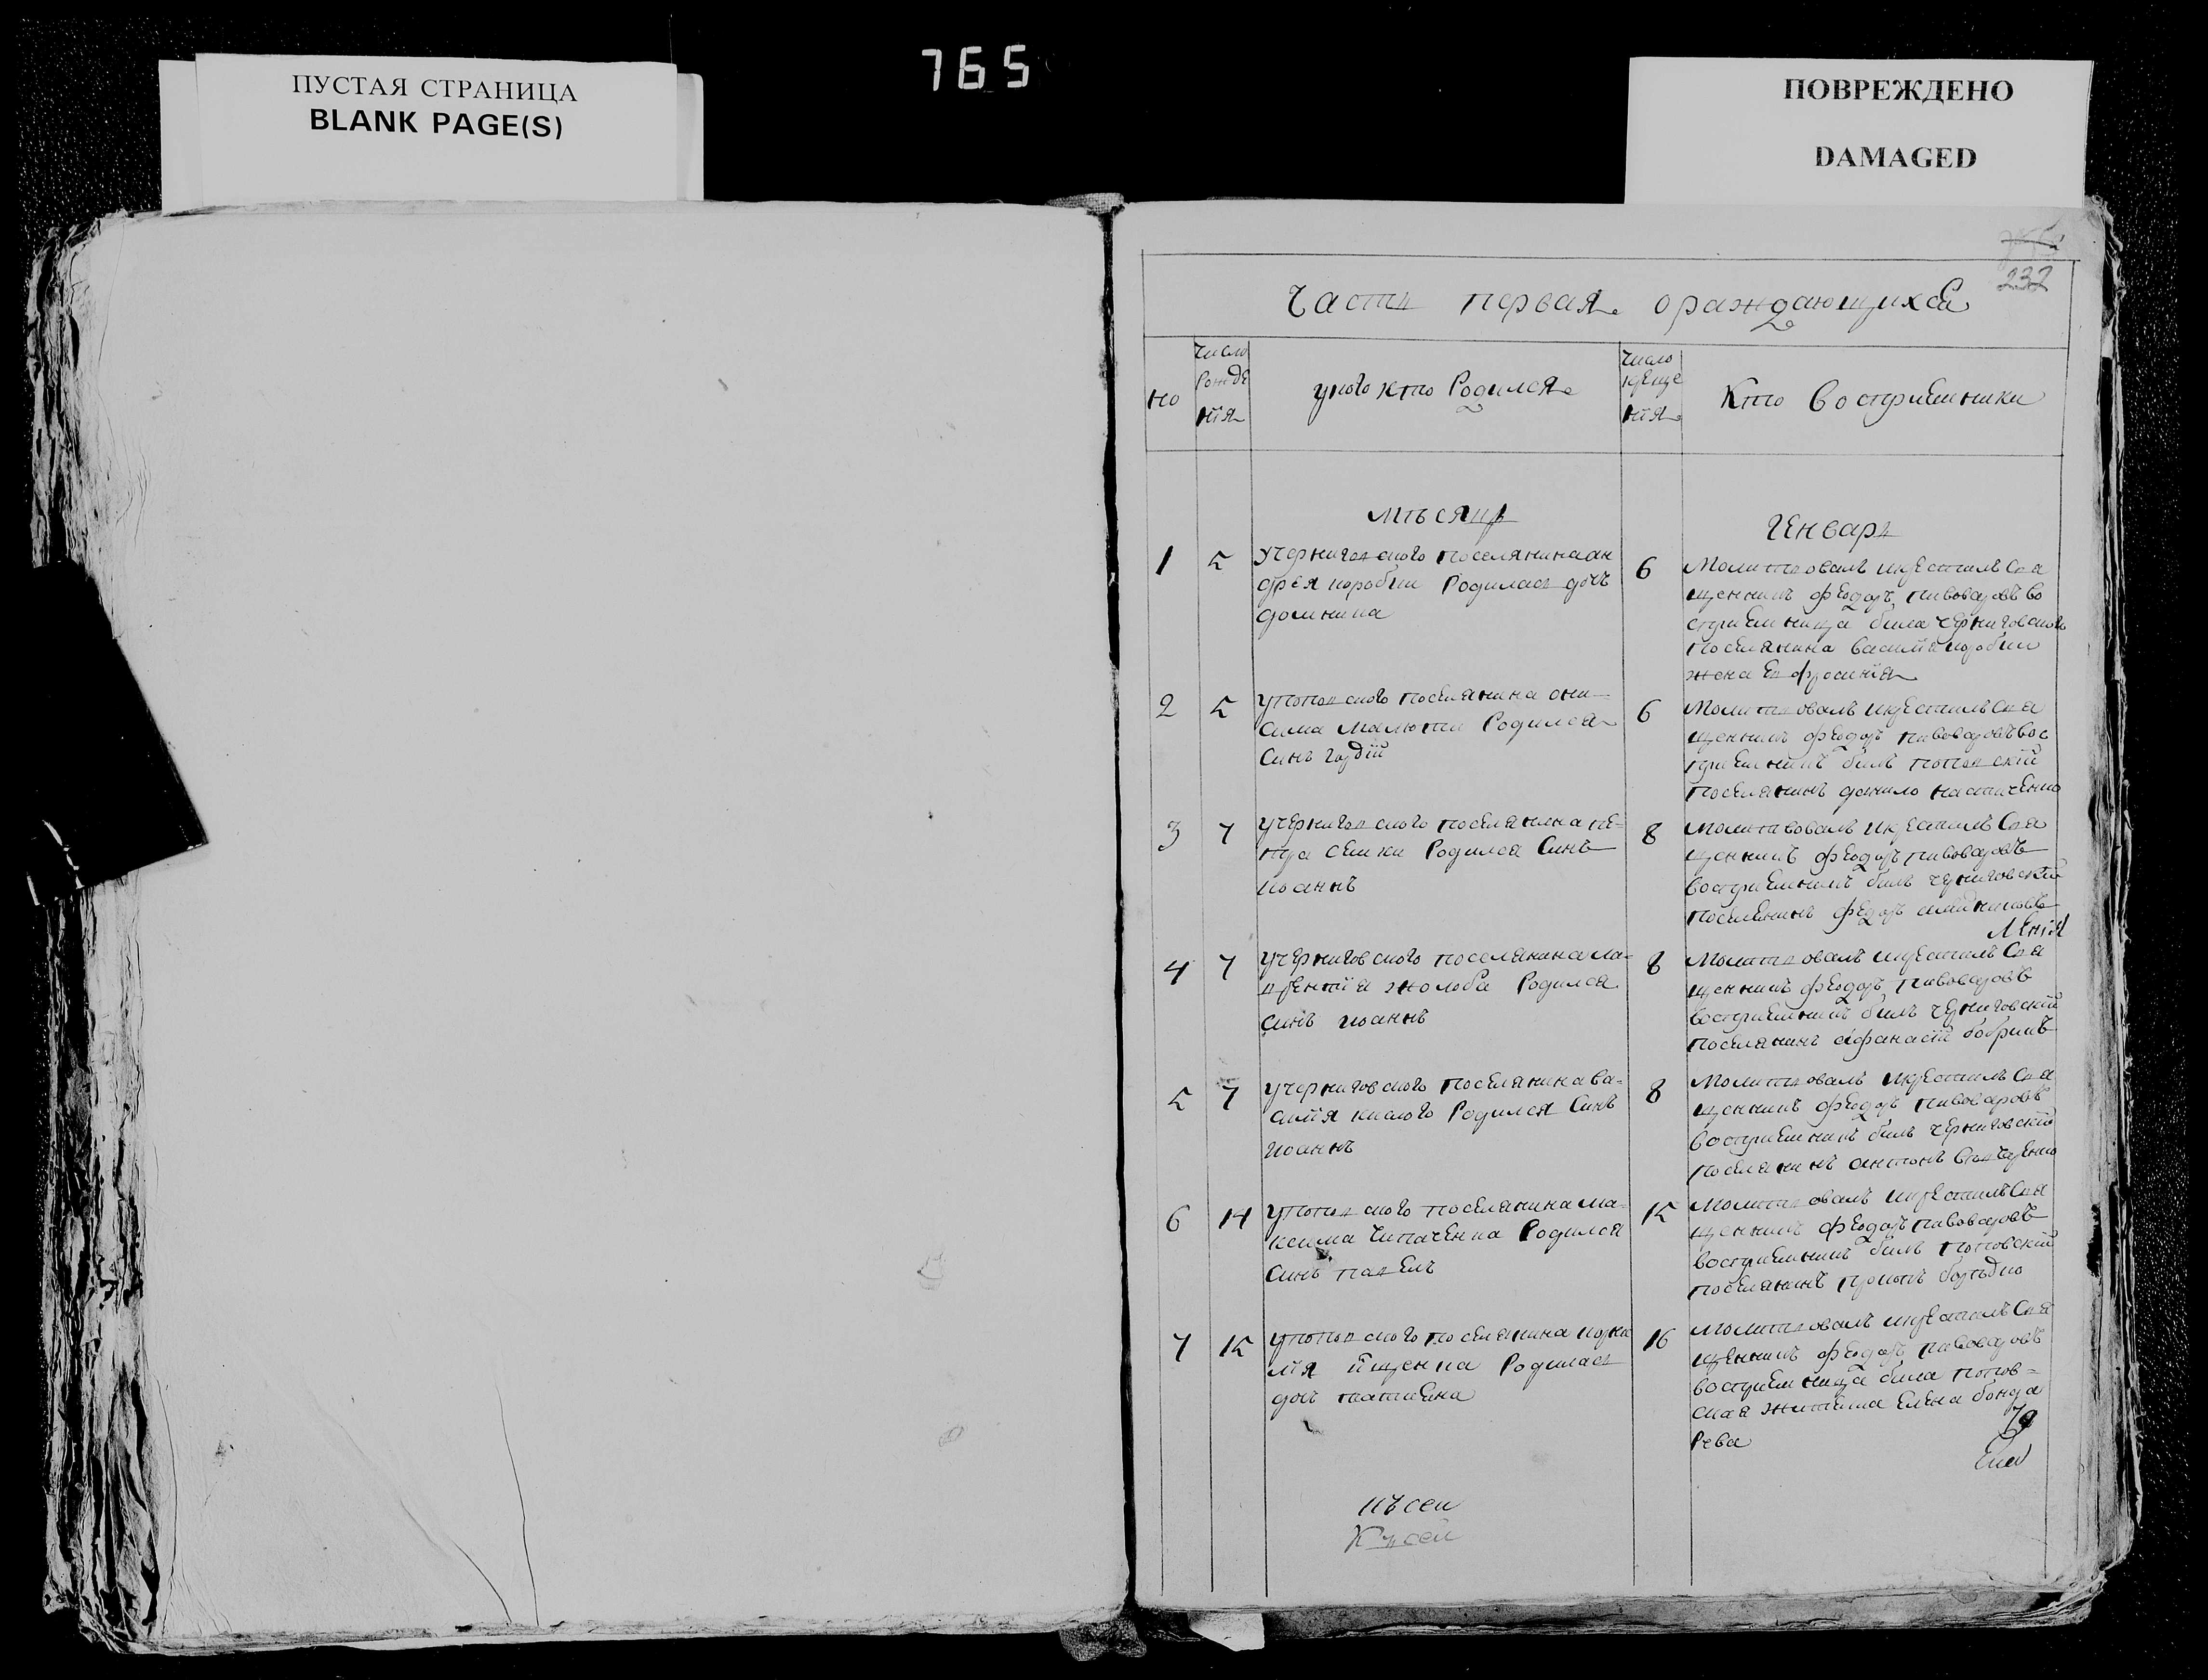 ПУСТАЯ СТРАНИЦА
BLANK PAGE(S)
765
ПОВРЕЖДЕНО
DAMAGED
232
Часть первая ораждающихся
но
число
рожде
нїя
укого кто Родился
число
креще
нїя
Кто восприемники
мѣсяцъ
Генварь
1
5
Учерниговского поселянинаан
дрея коробки Родилась дочъ
домникia
6
Молитвовалъ икрестилъ Свя
щенникъ феодоръ пивоваровъ во
сприемница била черниговского
поселянина василїя коробки
жена Евфросинїя
2
5
упоповского поселянина они
сима малюти Родился
Синъ гордїй
6
Молитвовалъ икрестилъ Свя
щенникъ феодоръ пивоваровъ вос
приемникъ билъ поповскїй
поселянинъ данило настиченко
3
7
учерниговского поселянина пе=
тра семки Родился Синъ
иоаннъ
8
молитвовалъ икрестилъ Свя
щенникъ феодоръ пивоваровъ
восприемникъ билъ черниговскїй
поселянинъ федоръ
4
7
учерниговского поселянина ла=
врентїя жолоба Родился
синъ иоаннъ
8
Молитвовалъ икрестилъ Свя
щенникъ феодоръ пивоваровъ
восприемникъ билъ черниговскїй
поселянинъ афанасїй бобрикъ
5
7
учерниговского поселянина ва=
силїя кислого Родился Синъ
иоаннъ
8
Молитвовалъ икрестилъ Свя
щенникъ феодоръ пивоваровъ
восприемникъ билъ черниговскїй
поселянинъ антонъ
6
14
упоповского поселянина ма=
ксима Чипаченка Родился
Синъ павелъ
15
Молитвовалъ икрестилъ Свя
щенникъ феодоръ пивоваровъ
восприемникъ билъ поповскїй
поселянинъ
7
15
упоповского поселянина корни
лїя їщенка Родилась
дочъ татиена
16
Молитвовалъ икрестилъ Свя
щенникъ феодоръ пивоваровъ
восприемница била попов=
ская жителка Елена бонда
рева